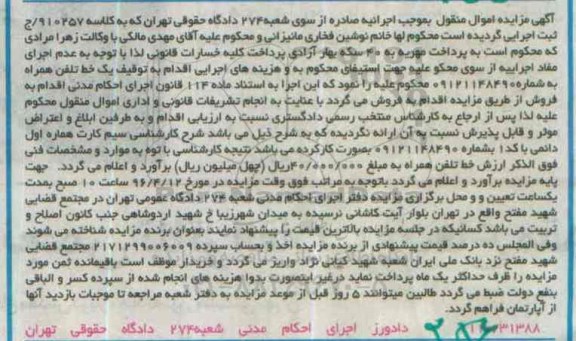 آگهی مزایده اموال منقول بموجب اجرائیه صادره از سوی شعبه ۲۷۴ دادگاه حقوقی تهران که به کلاسه ۹۱۰۲۵۷/ج
ثبت اجرایی گردیده است محکوم لها خانم نوشین فخاری مانیزانی و محکوم علیه آقای مهدی مالکی با وکالت زهرا مرادی
که محکوم است به پرداخت مهریه به ۴۰ سکه بهار آزادی پرداخت کلیه خسارات قانونی لذا با توجه به عدم اجرای
مفاد اجراییه از سوی محکو علیه جهت استیفای محکوم به و هزینه های اجرایی اقدام به توقیف یک خط تلفن همراه
به شماره ۰۹۱۲۱۱۴۸۴۹۰ محکوم علیه را نمود که این اجرا به استناد ماده ۱۱۴ قانون اجرای احکام مدنی اقدام به
فروش از طریق مزایده اقدام به فروش می گردد با عنایت به انجام تشریفات قانونی و اداری اموال منقول محکوم
علیه لذا پس از ارجاع به کارشناس منتخب رسمی دادگستری نسبت به ارزیابی اقدام و به طرفین ابلاغ و اعتراض
موثر و قابل پذیرش نسبت به آن ارائه نگردیده که به شرح ذیل می باشد شرح کارشناسی سیم کارت هماره اول
دائمی با کد۱ بشماره ۰۹۱۲۱۱۴۸۴۹۰ بصورت کارکرده می باشد نتیجه کارشناسی با توه به موارد و مشخصات فنی
فوق الذکر ارزش خط تلفن همراه به مبلغ ۴۰/۰۰۰/۰۰۰ریال (چهل میلیون ریال) برآورد و اعلام می گردد. جهت
پایه مزایده برآورد و اعلام می گردد باتوجه به مراتب فوق وقت مزایده در مورخ ۹۶/۴/۱۲ ساعت ۱۰ صبح بمدت
یکساعت تعیین و و محل برگزاری مزایده دفتر اجرای احکام مدنی شعبه ۲۷۴ دادگاه عمومی تهران در مجتمع قضایی
شهید مفتح واقع در تهران بلوار آیت کاشانی نرسیده به میدان شهرزیبا خ شهید اردوشاهی جنب کانون اصلاح و
تربیت می باشد کسانیکه در جلسه مزایده بالاترین قیمت را پیشنهاد نمایند بعنوان برنده مزایده شناخته می شوند
وفی المجلس ده درصد قیمت پیشنهادی از برنده مزایده اخذ و بحساب سپرده ۲۱۷۱۲۹۹۰۰۶۰۰۹ مجتمع قضایی
شهید مفتح نزد بانک ملی ایران شعبه شهید کیانی نژاد واریز می گردد و خریدار موظف است باقیمانده ثمن مورد
مزایده را ظرف حداکثر یک ماه پرداخت نماید درغیر اینصورت بدوا هزینه های انجام شده از سپرده کسر و الباقی
بنفع دولت ضبط می گردد طالبین میتوانند ۵ روز قبل از موعد مزایده به دفتر شعبه مراجعه تا موجبات بازدید آنها
از آپارتمان فراهم گردد.
دادورز اجرای احکام مدنی شعبه۲۷۴ دادگاه حقوقی تهران